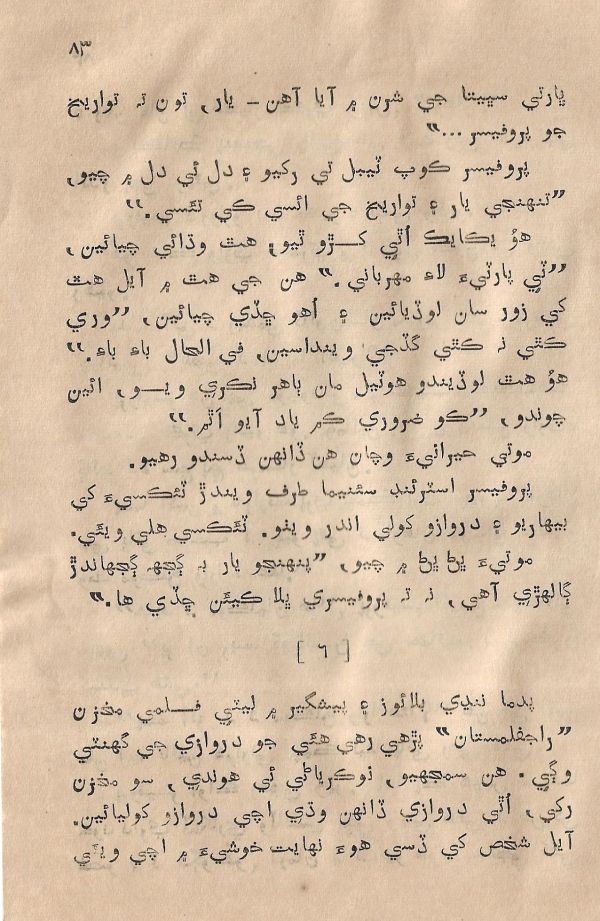 ۸۳
ڀارتي سڀيتا جي شرن ۾ آيا آهن ـ يار، تون تہ تواريخ
جو پروفيسر...”
پروفيسر ڪوپ ٽيبل تي رکيو ۽ دل ئي دل ۾ چيو،
”تنهنجي يار ۽ تواريخ جي ائسي ڪي تئسي.“
هوُ يڪايڪ اُٿي کــڙو ٿيو، هٿ وڌائي چيائين،
”ٽي پارٽيءَ لاءِ مهرباني.“ هن جي هٿ ۾ آيل هٿ
کي زور سان لوڏيائين ۽ اُهو ڇڏي چيائين، ”وري
ڪٿي نہ ڪٿي گڏجي وينداسين، في الحال باءِ باءِ.“
هوُ هٿ لوڏيندو هوٽيل مان ٻاهر نڪري ويــو، ائين
چوندو، ”ڪو ضروري ڪم ياد آيو اَٿم.“
موتي حيرانيءَ وچان هن ڏانهن ڏسندو رهيو.
پروفيسر اسٽرئنڊ سئنيما طرف ويندڙ ٽئڪسيءَ کي
بيهاريو ۽ دروازو کولي اندر ويٺو. ٽئڪسي هلي ويئي.
موتيءَ ڀڻ ڀڻ ۾ چيو، ”پنهنجو يار بہ ڳجهہ ڳجهاندڙ
ڳالهڙي آهي، نہ تہ پروفيسري ڀلا ڪيئن ڇڏي ها.”
[ ٦ ]
پدما ننڍي بلائوز ۽ پيشگير ۾ ليٽي فــلمي مخزن
”راجفلمستان” پڙهي رهي هئي جو دروازي جي گهنٽي
وڳي. هن سمجهيو، نوڪرياڻي ئي هوندي، سو مخزن
رکي، اُٿي دروازي ڏانهن وڌي اچي دروازو کوليائين.
آيل شخص کي ڏسي هوءَ نهايت خوشيءَ ۾ اچي ويئي